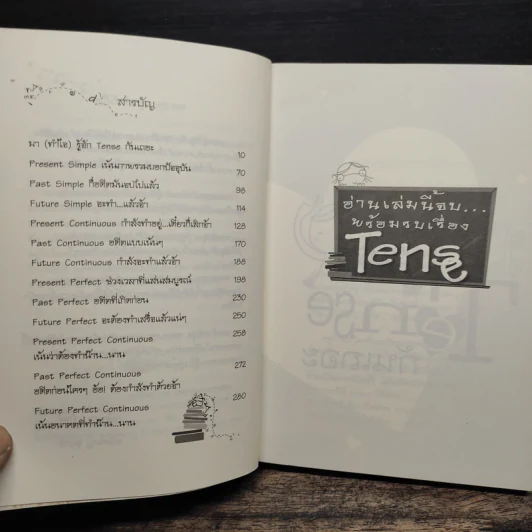 สารบัญ
มา (ทำใจ) รู้จัก Tense กันเถอะ 10
Present Simple เน้นภาพรวมบอกปัจจุบัน 70
Past Simple ก็อดีตมันจบไปแล้ว 98
Future Simple จะทำ...แล้วจ้า 114
Present Continuous กำลังทำอยู่...เดี๋ยวก็เลิกจ้า 128
Past Continuous อดีตแบบเน้นๆ 170
Future Continuous กำลังจะทำแล้วจ้า 188
Present Perfect ช่วงเวลาที่แสนสมบูรณ์ 198
Past Perfect อดีตที่เกิดก่อน 230
Future Perfect จะต้องทำเสร็จแล้วแน่ๆ 250
Present Perfect Continuous 258
เน้นว่าต้องทำน๊าน...นาน
Past Perfect Continuous 272
อดีตก่อนใครๆ อ้อ! ต้องกำลังทำด้วยจ้า
Future Perfect Continuous 280
เน้นอนาคตที่ทำน๊าน...นาน
อ่านเล่มนี้จบ...
พร้อมรบเรื่อง
Tense